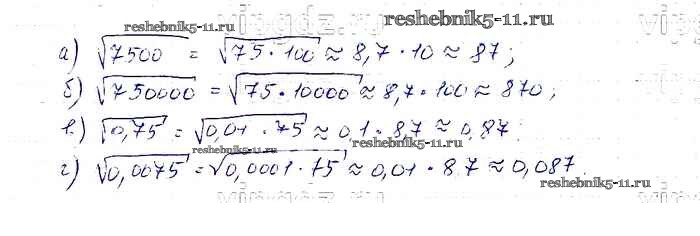 reshebnik5-11.ru
reshebnik5-11.ru
а) √7500 = √75·100 ≈ 8,7·10 ≈ 87;
б) √750000 = √75·10000 ≈ 8,7·100 ≈ 870;
в.) √0,75 = √0,01·75 ≈ 0,1·8,7 ≈ 0,87
г) √0,0075 = √0,0001·75 ≈ 0,01·8,7 ≈ 0,087
reshebnik5-11.ru
reshebnik5-11.ru